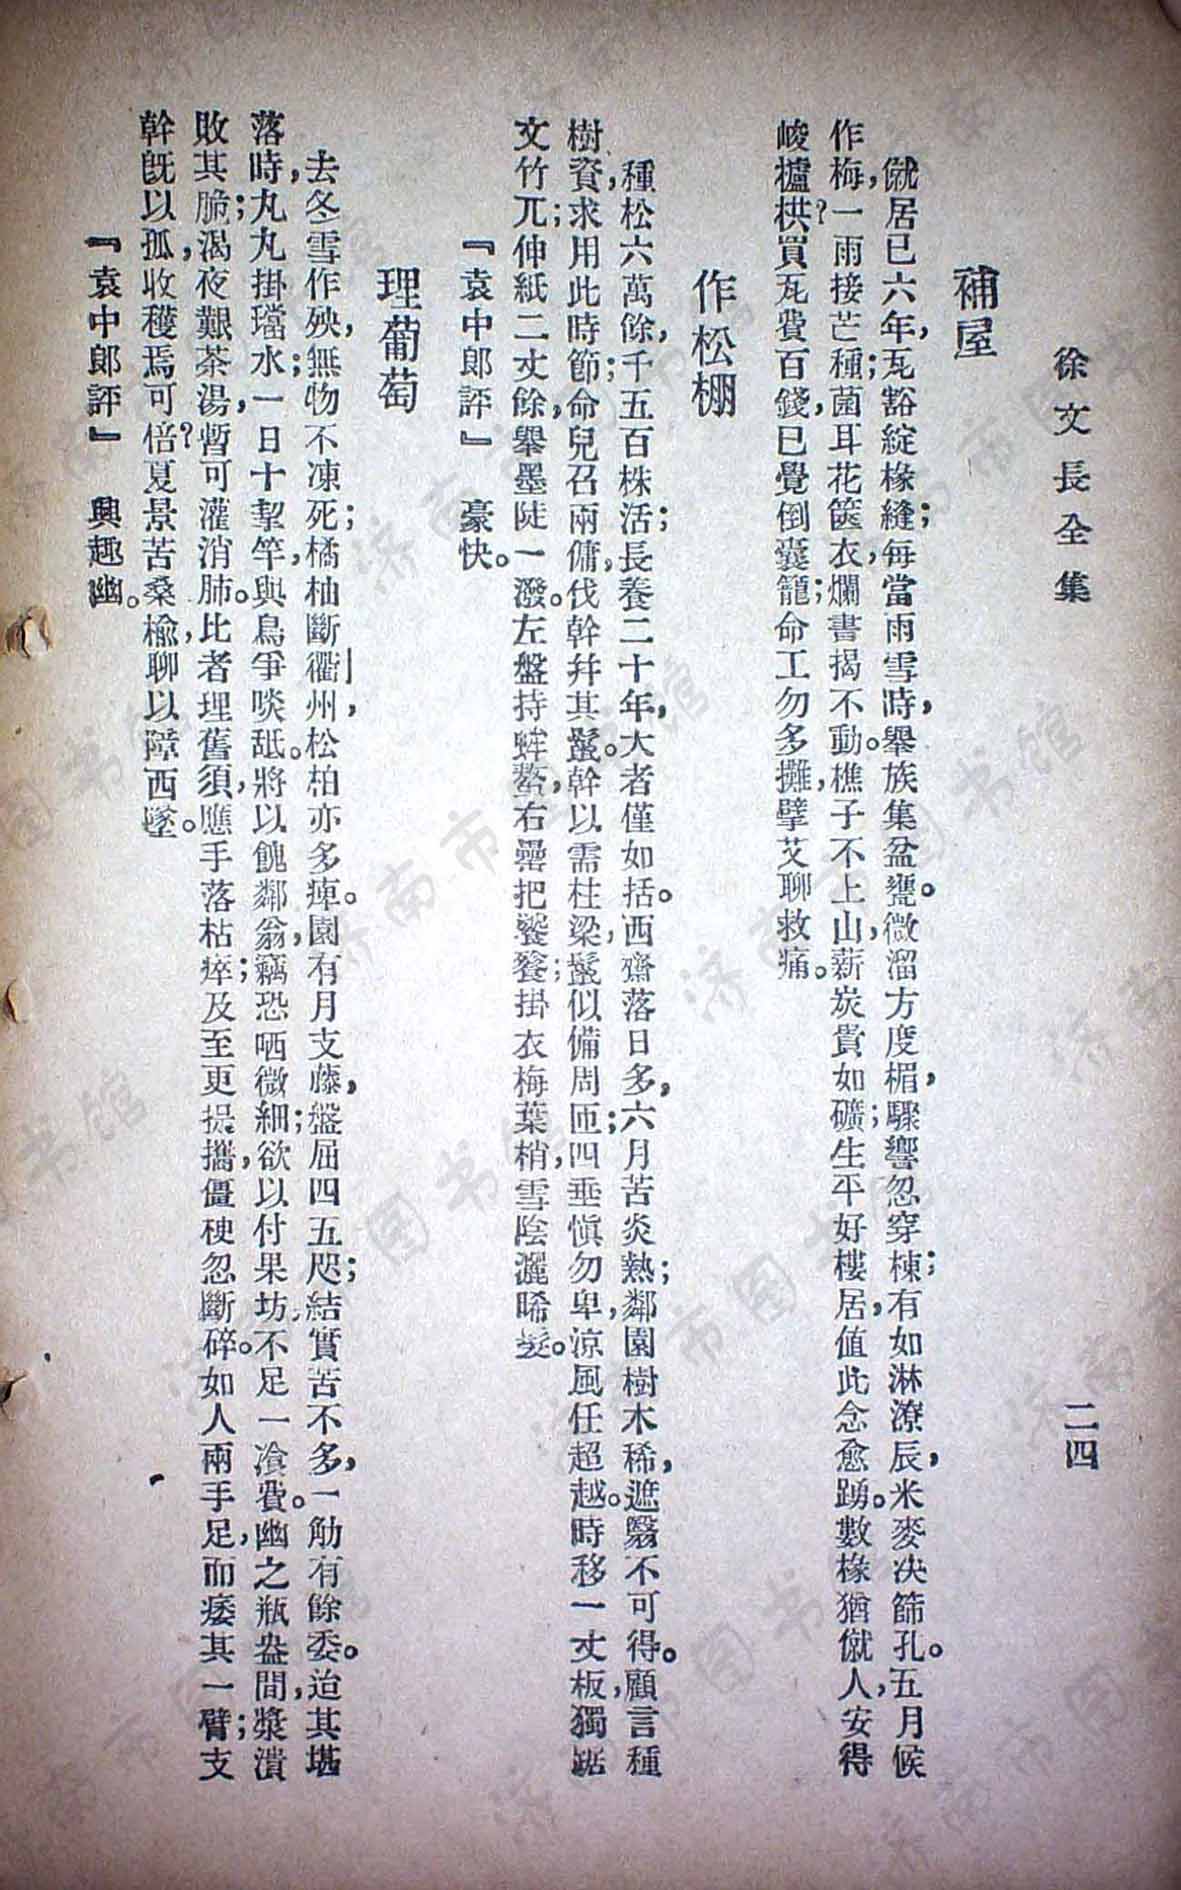 徐文長全集
二四
補屋
僦居已六年，瓦豁綻椽縫；每當雨雪時，舉族集盆甕。微溜方度楣，驟響忽穿棟；有如淋潦辰，米麥决篩孔。五月候
作梅，一雨接芒種；菌耳花篋衣，爛書揭不動。樵子不上山，薪炭貴如礦；生平好樓居，值此念愈踴。數椽猶僦人，安得
峻櫨栱？買瓦費百錢，已覺倒囊籠；命工勿多攤，擘艾聊救痛。
作松棚
種松六萬餘，千五百株活；長養二十年，大者僅如括。西齋落日多，六月苦炎熱；鄰園樹木稀，遮翳不可得。顧言種
樹資，求用此時節；命兒召兩傭，伐幹幷其鬣。幹以需柱梁，鬣似備周匝；四垂愼勿卑，涼風任超越。時移一丈板，獨踞
文竹兀；伸紙二丈餘，舉墨陡一潑。左盤持蚌螯，右罍把饕餮；掛衣梅葉梢，雪陰灑晞髮。
『袁中郞評』　豪快。
理葡萄
去冬雪作殃，無物不凍死；橘柚斷衢州，松柏亦多瘅。園有月支藤，盤屈四五咫；結實苦不多，一觔有餘委。迨其堪
落時，丸丸掛璫水；一日十挈竿，與鳥爭啖舐。將以餽鄰翁，竊恐哂微細；欲以付果坊，不足一飡費。幽之瓶盎間，漿潰
敗其脆；渴夜艱茶湯，暫可灌消肺。比者理舊須，應手落枯瘁；及至更提攜，僵梗忽斷碎。如人兩手足，而痿其一臂；支
幹旣以孤，收穫焉可倍？夏景苦桑榆，聊以障西墜。
『袁中郞評』　興趣幽。
济南市图书馆